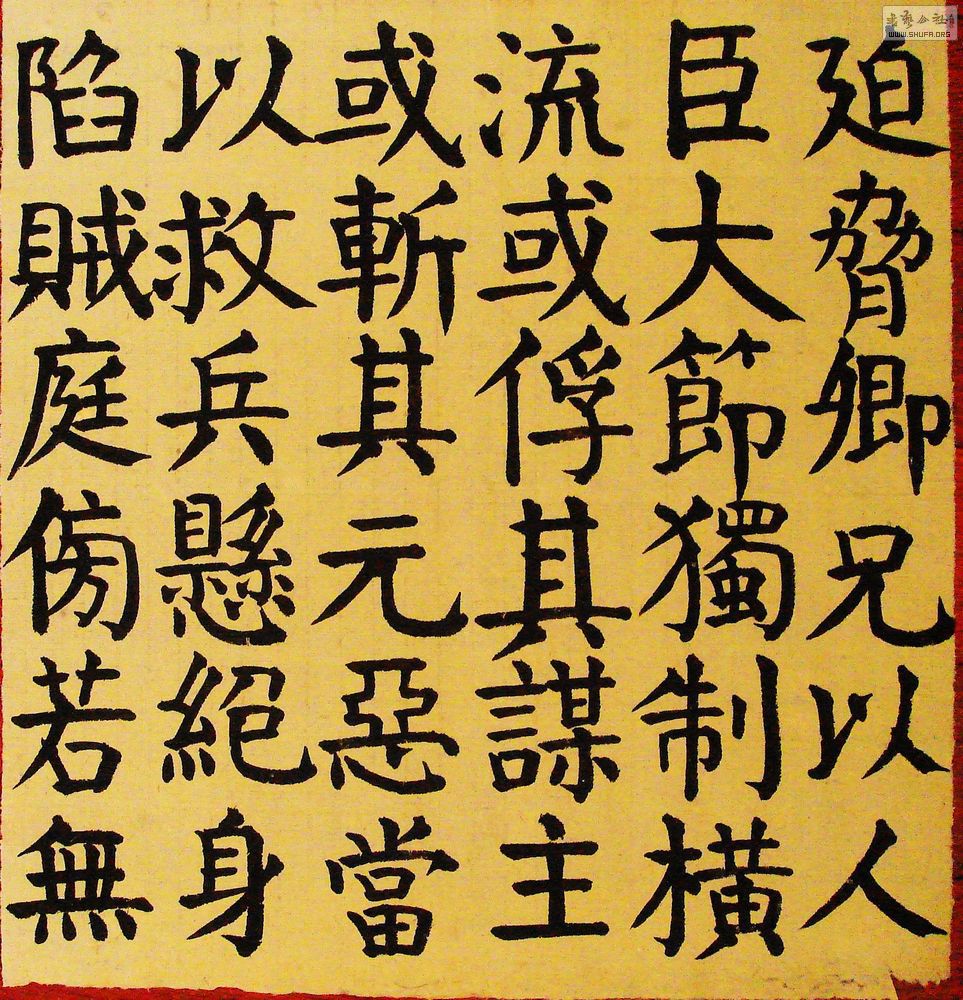 廹脅卿兄以人
臣大節獨制横
流或俘其謀主
或斬其元惡當
以救兵懸絕身
陷賊庭傍若無
WWW.SHUFA.ORG